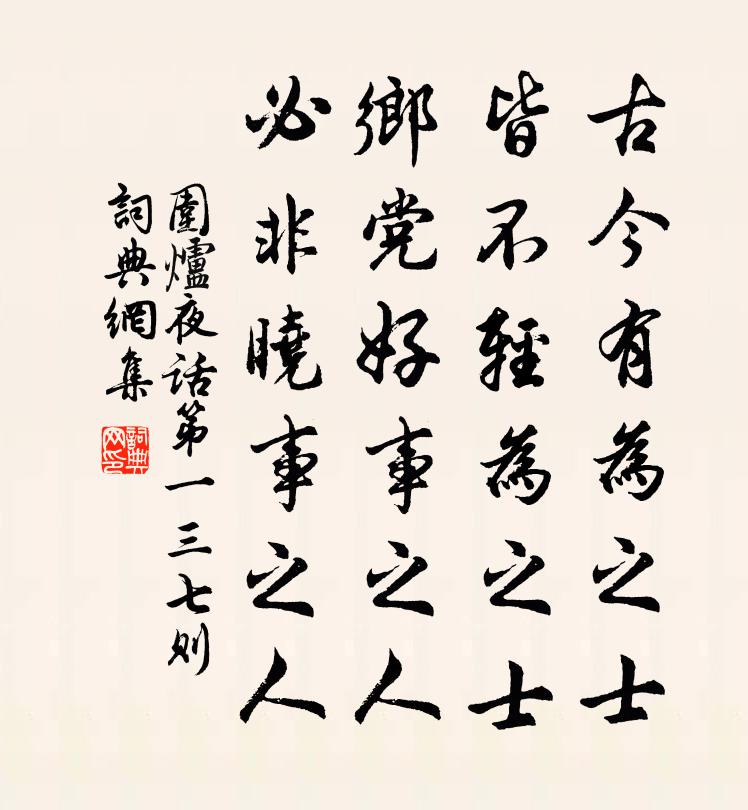 古今有為之士
皆不輕為之士
鄉党好事之人
必非曉事之人
圍爐夜话第一三七则
詞典網集
詞典网印